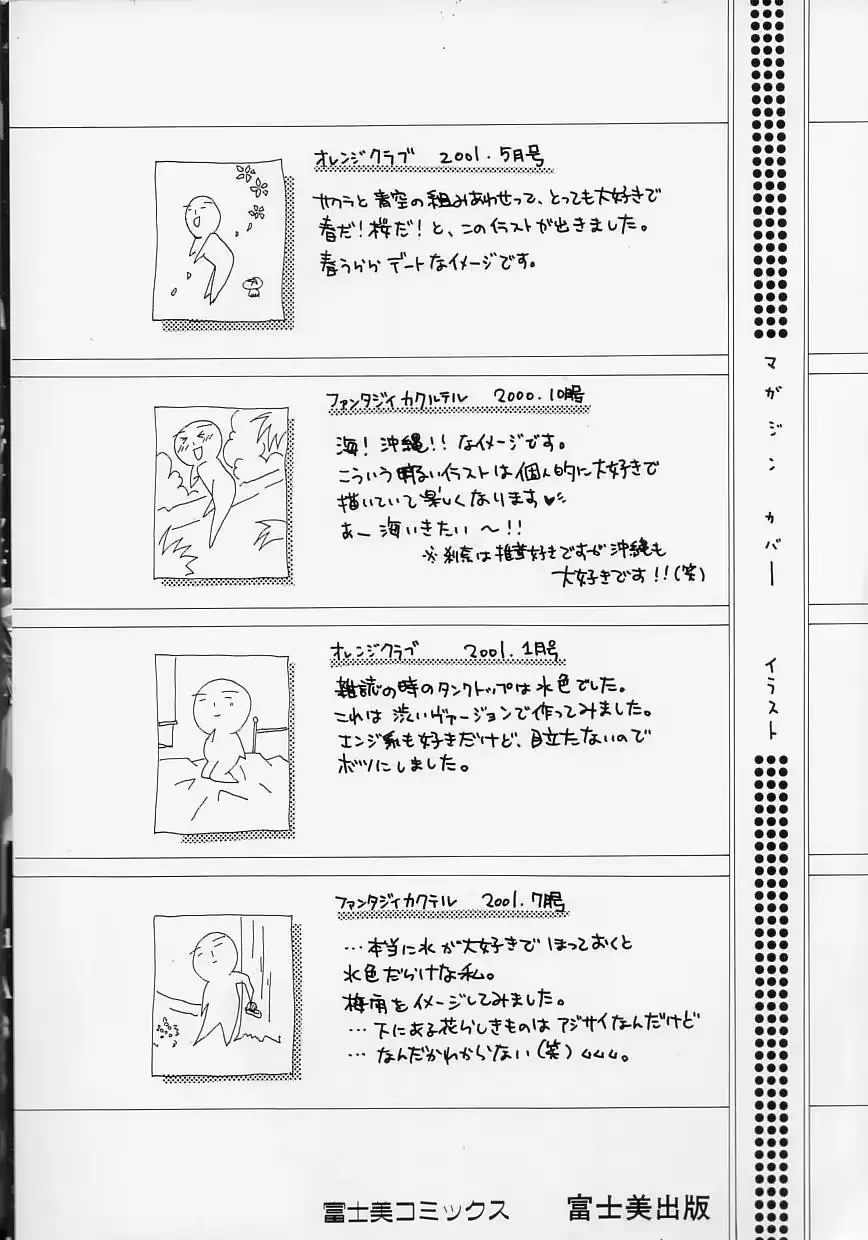 オレンジクラブ 2001.5月号
サクラと青空の組みあわせって、とっても大好きで
春だ!桜だ!と、このイラストが出きました。
春うららデートなイメージです。
ファンタジィカクルテル 2000.10月号
海!沖縄!!なイメージです。
こういう明るいイラストは個人的に大好きで
描いていて楽しくなります♥
あー海いきたい〜!!
※刹奈は推茸好きですが沖縄も
大好きです!!(笑)
オレンジクラブ 2001.1月号
雑誌の時のタンクトップは水色でした。
これは渋いヴァージョンで作ってみました。
エンジ系も好きだけど、目立たないので
ボツにしました。
ファンタジィカクテル 2001.7月号
…本当に水が大好きでほっておくと
水色だらけな私。
梅雨をイメージしてみました。
…下にある花らしきものはアジサイなんだけど
…なんだかわからない(笑)
マガジン カバー イラスト
富士美コミックス 富士美出版